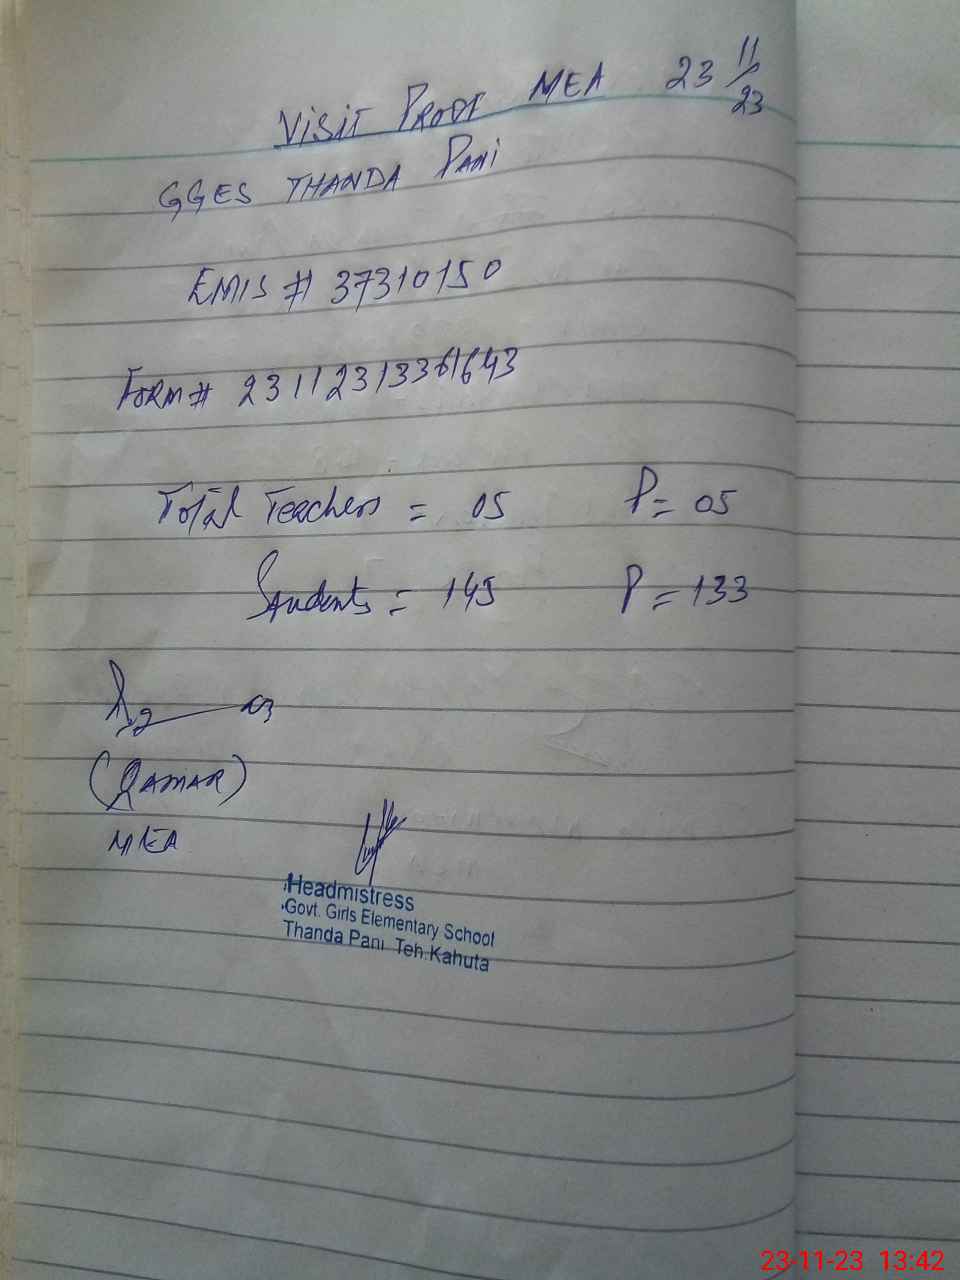 VISIT PROOF MEA 23 11/23
GGES THANDA PANI
EMIS # 37310150
FORM # 23112313361643
Total Teachers = 05 P = 05
Students = 145 P = 133
(QAMAR)
MEA
Headmistress
Govt. Girls Elementary School
Thanda Pani Teh.Kahuta
23-11-23 13:42